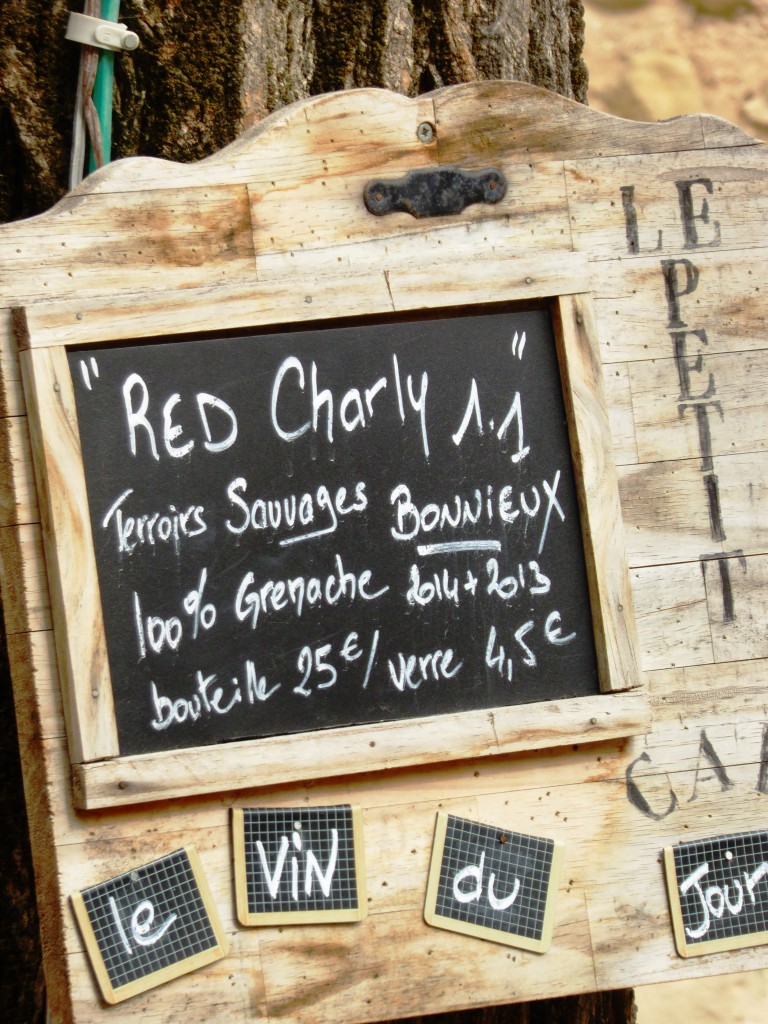 " RED Charly 1.1 "
Terroirs Sauvages BONNIEUX
100% Grenache 2014+2013
bouteille 25€/ verre 4,5€
LE
PETIT
le
VIN
du
Jour